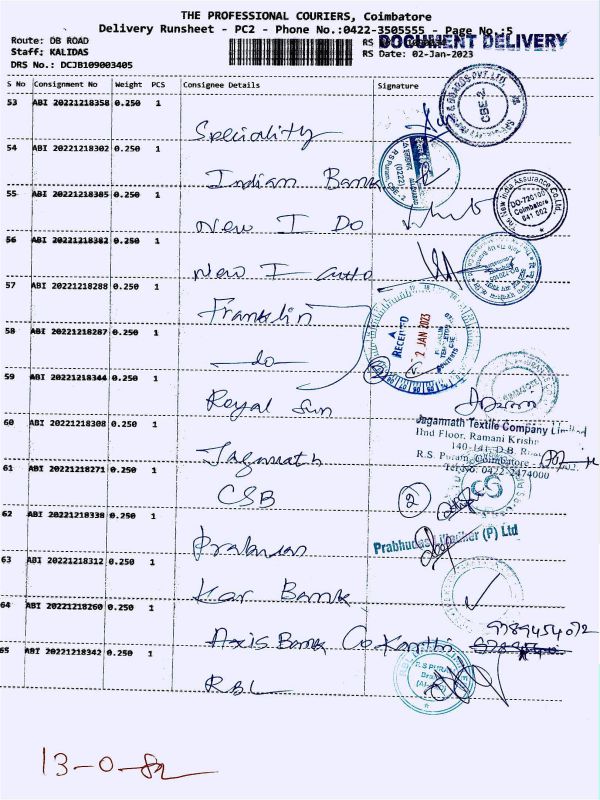 THE PROFESSIONAL COURIERS, Coimbatore
Delivery Runsheet - PC2 - Phone No.:0422-3505555 - Page No.:5
Route: DB ROAD
RS
DOCUMENT DELIVERY
Staff: KALIDAS
RS Date: 02-Jan-2023
DRS No.: DCJB109003405
S No Consignment No Weight PCS Consignee Details Signature
53 ABI 20221218358 0.250 1
Speciality
54 ABI 20221218302 0.250 1
Indian Bank
55 ABI 20221218305 0.250 1
New I Do
56 ABI 20221218382 0.250 1
New I
57 ABI 20221218288 0.250 1
Franklin
58 ABI 20221218287 0.250 1
do
59 ABI 20221218344 0.250 1
Royal Sun
60 ABI 20221218308 0.250 1
Jagannath
61 ABI 20221218271 0.250 1
CSB
62 ABI 20221218338 0.250 1
Prabudas
63 ABI 20221218312 0.250 1
Kar Bank
64 ABI 20221218260 0.250 1
Axis Bank Co Kanthi
9789454072
65 ABI 20221218342 0.250 1
RBL
CBE-2
The New India Assurance Co. Ltd.
DO-720100
Coimbatore
641 002
RECEIVED
2 JAN 2023
Jagannath Textile Company Limited
IInd Floor, Ramani Krishn
140-141, D.B. Road
R.S. Puram, Coimbatore
Tel No. 0422-2474000
2
Prabhudas Lilladher (P) Ltd
13-0-82